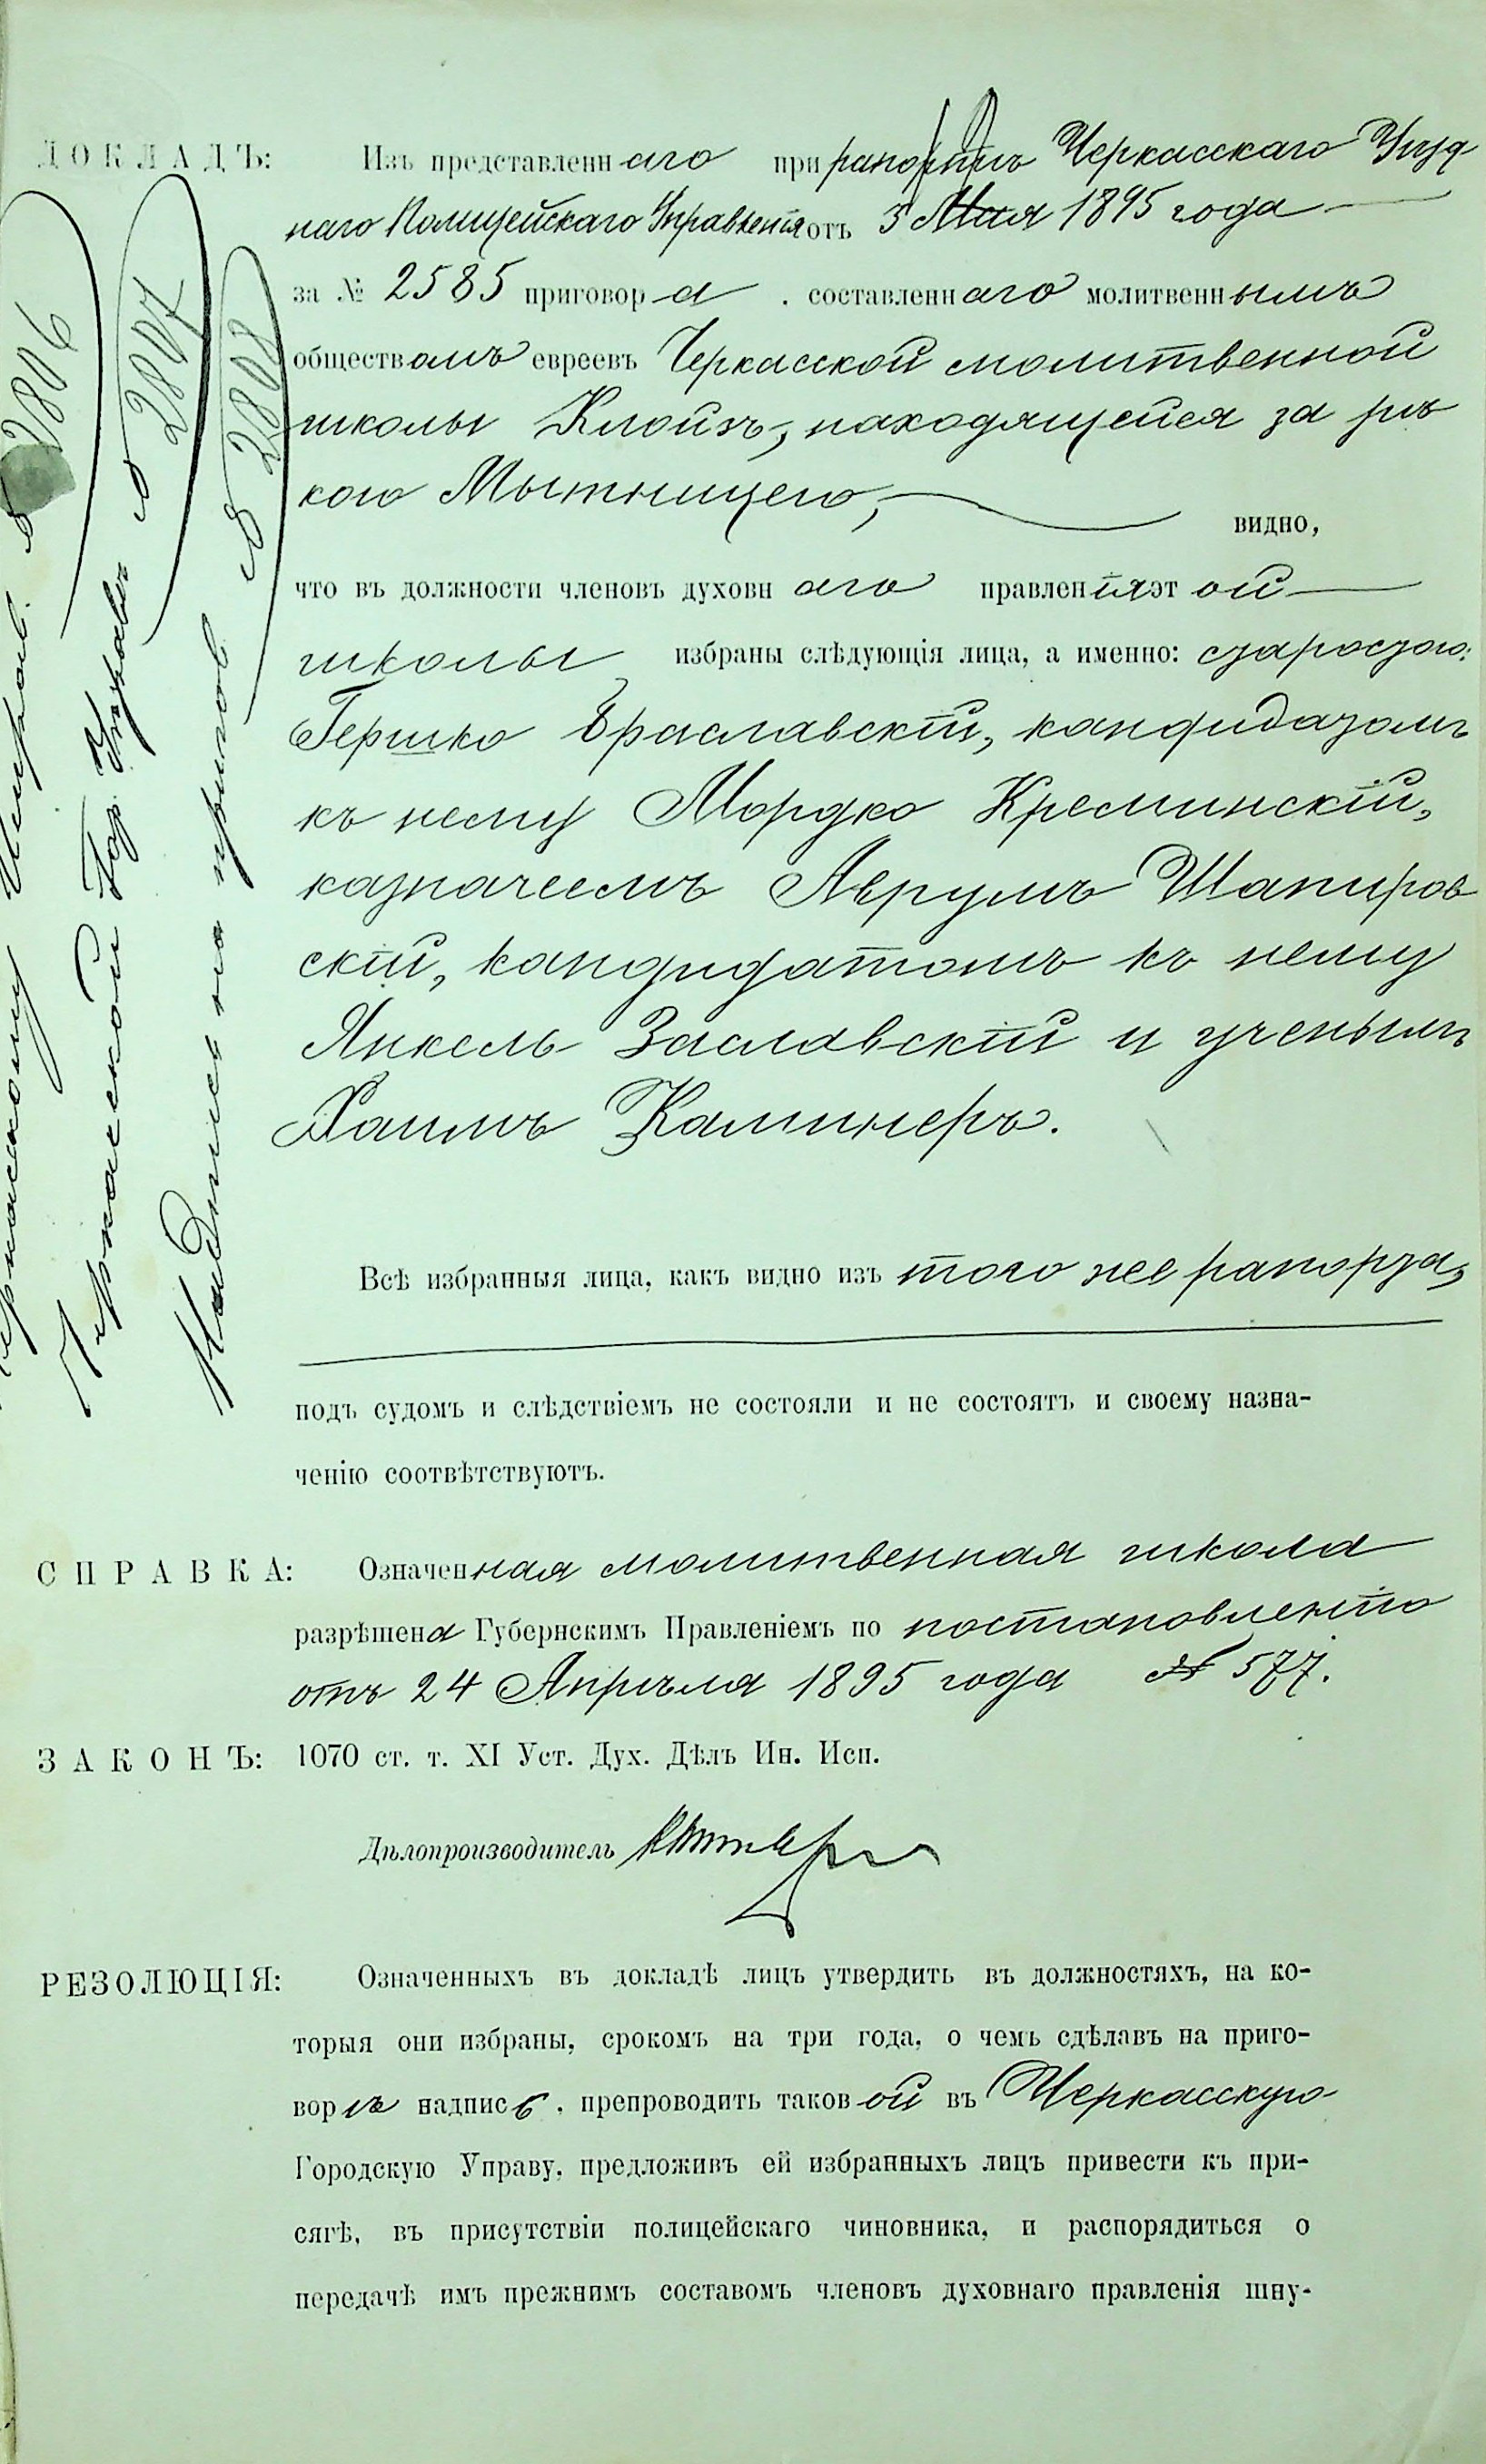 ДОКЛАДЪ: Изъ представленнаго при рапортѣ Черкасскаго Уѣзд
наго Полицейскаго Управленія отъ 3 Мая 1895 года
за № 2585 приговора . составленнаго молитвеннымъ
обществомъ евреевъ Черкасской молитвенной
школы Клойзъ, находящейся за рѣ
кою Мытницею, видно,
что въ должности членовъ духовнаго правленія этой
школы избраны слѣдующія лица, а именно: старостою:
Гершко Браславскій, кандидатомъ
къ нему Мордко Креминскій,
казначеемъ Аврумъ Шапиров
скій, кандидатомъ къ нему
Янкель Заславскій и ученымъ
Хаимъ Калинеръ.
Всѣ избранныя лица, какъ видно изъ того же рапорта,
подъ судомъ и слѣдствіемъ не состояли и не состоятъ и своему назна-
ченію соотвѣтствуютъ.
СПРАВКА: Означенная молитвенная школа
разрѣшена Губернскимъ Правленіемъ по постановленію
отъ 24 Апрѣля 1895 года № 577.
ЗАКОНЪ: 1070 ст. т. XI Уст. Дух. Дѣлъ Ин. Исп.
Дѣлопроизводитель
РЕЗОЛЮЦІЯ: Означенныхъ въ докладѣ лицъ утвердить въ должностяхъ, на ко-
торыя они избраны, срокомъ на три года, о чемъ сдѣлавъ на приго-
ворѣ надпись, препроводить таковой въ Черкасскую
Городскую Управу, предложивъ ей избранныхъ лицъ привести къ при-
сягѣ, въ присутствіи полицейскаго чиновника, и распорядиться о
передачѣ имъ прежнимъ составомъ членовъ духовнаго правленія шну-
№ 2806
Черкасской Гор. Управѣ № 2807
Надпись на пригов № 2808